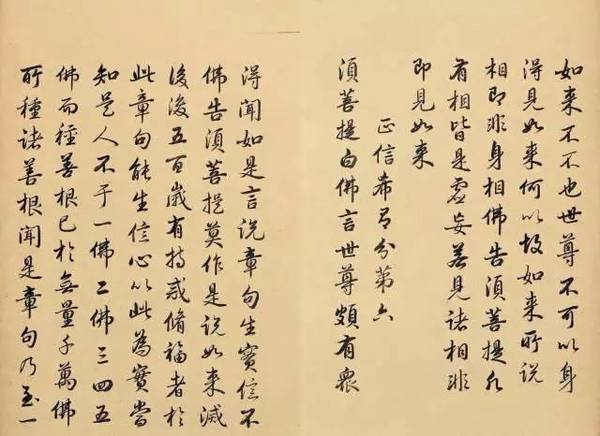 如来不不也世尊不可以身
得見如来何以故如来所說
相即非身相佛告須菩提凡
有相皆是虛妄若見諸相非
即見如来
正信希有分第六
須菩提白佛言世尊頗有衆
得聞如是言說章句生實信不
佛告須菩提莫作是說如来滅
後後五百歲有持戒脩福者於
此章句能生信心以此為實當
知是人不于一佛二佛三四五
佛而種善根已於無量千萬佛
所種諸善根聞是章句乃至一